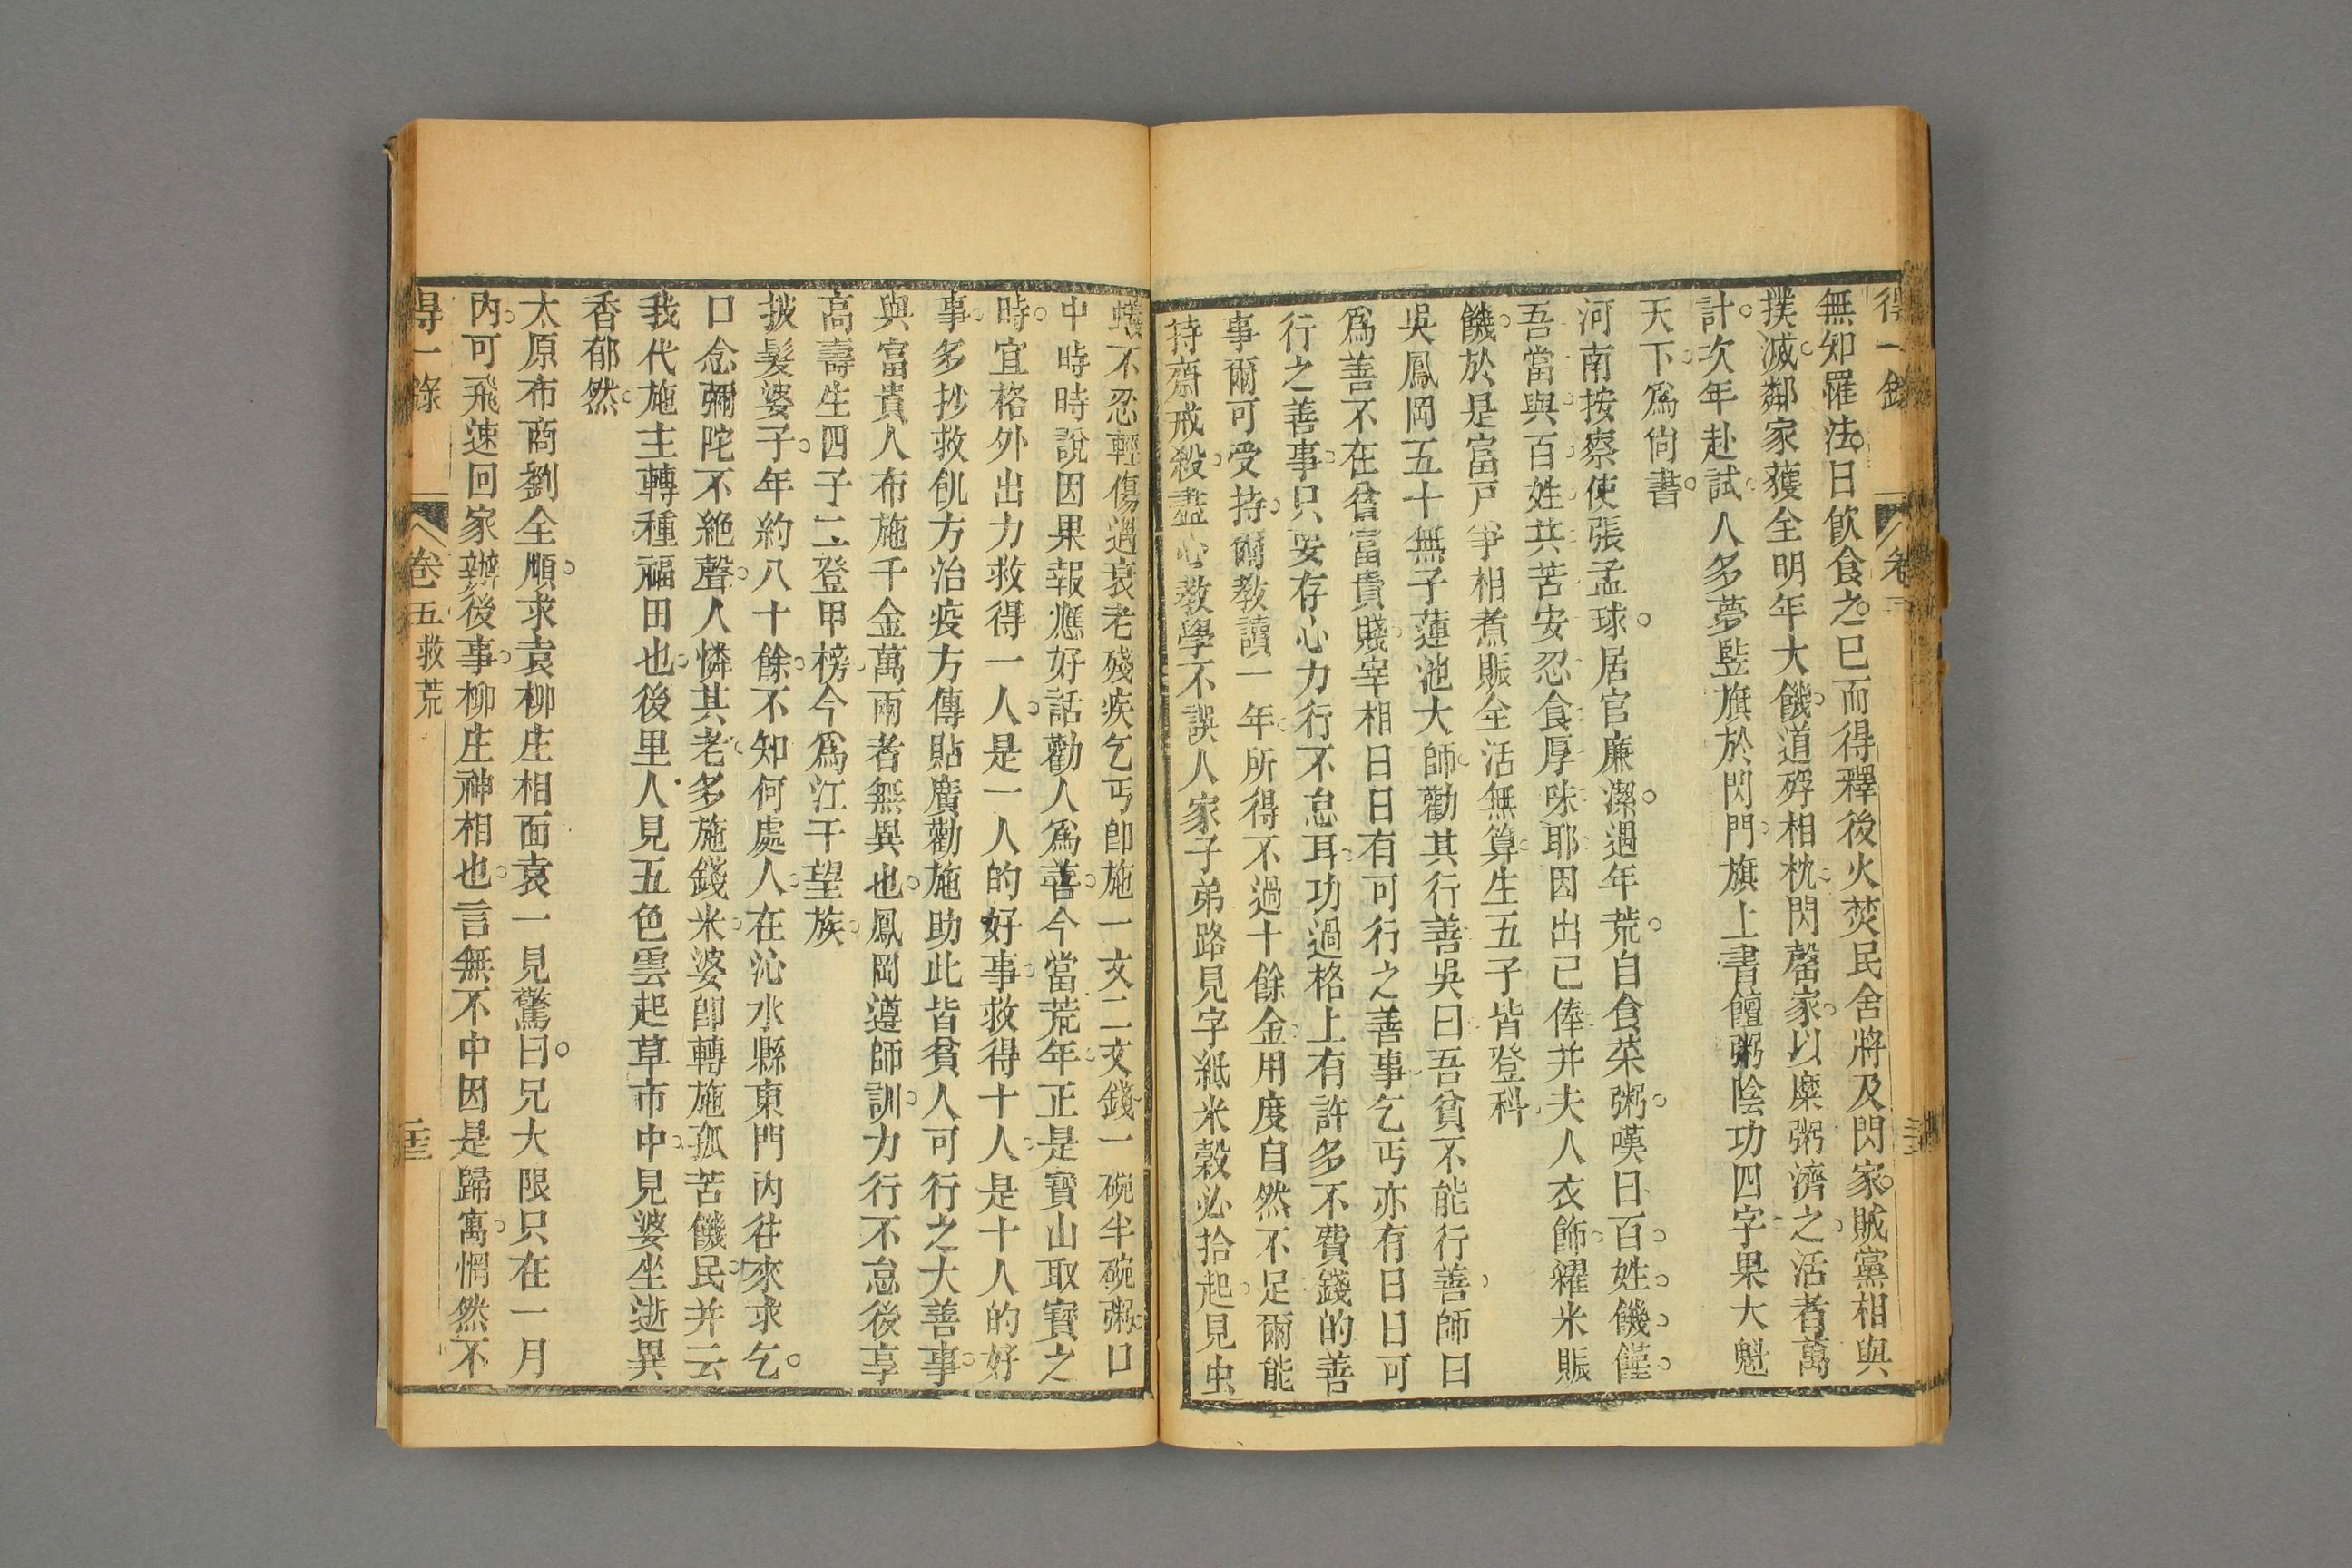 得一錄 卷五
無知罹法日飲食之已而得釋後火焚民舍將及閃家賊黨相與
撲滅鄰家獲全明年大饑道殍相枕閃罄家以糜粥濟之活者萬
計次年赴試人多夢豎旗於閃門旗上書饘粥陰功四字果大魁
天下爲尚書
河南按察使張孟球居官廉潔遇年荒自食菜粥嘆曰百姓饑饉
吾當與百姓共苦安忍食厚味耶因出己俸并夫人衣飾糴米賑
饑於是富戸爭相煮賑全活無算生五子皆登科
吳鳳岡五十無子蓮池大師勸其行善吳曰吾貧不能行善師曰
爲善不在貧富貴賤宰相日日有可行之善事乞丐亦有日日可
行之善事只要存心力行不怠耳功過格上有許多不費錢的善
事爾可受持爾教讀一年所得不過十餘金用度自然不足爾能
持齋戒殺盡心教學不誤人家子弟路見字紙米穀必拾起見虫
蟻不忍輕傷遇衰老殘疾乞丐卽施一文二文錢一碗半碗粥口
中時時說因果報應好話勸人爲善今當荒年正是寶山取寶之
時宜格外出力救得一人是一人的好事救得十人是十人的好
事多抄救飢方治疫方傳貼廣勸施助此皆貧人可行之大善事
與富貴人布施千金萬兩者無異也鳳岡遵師訓力行不怠後享
高壽生四子二登甲榜今爲江干望族
披髮婆子年約八十餘不知何處人在沁水縣東門內往來求乞
口念彌陀不絕聲人憐其老多施錢米婆卽轉施孤苦饑民并云
我代施主轉種福田也後里人見五色雲起草市中見婆坐逝異
香郁然
太原布商劉全順求袁柳庄相面袁一見驚曰兄大限只在一月
內可飛速回家辦後事柳庄神相也言無不中因是歸寓惘然不
得一錄 卷五救荒 二十三